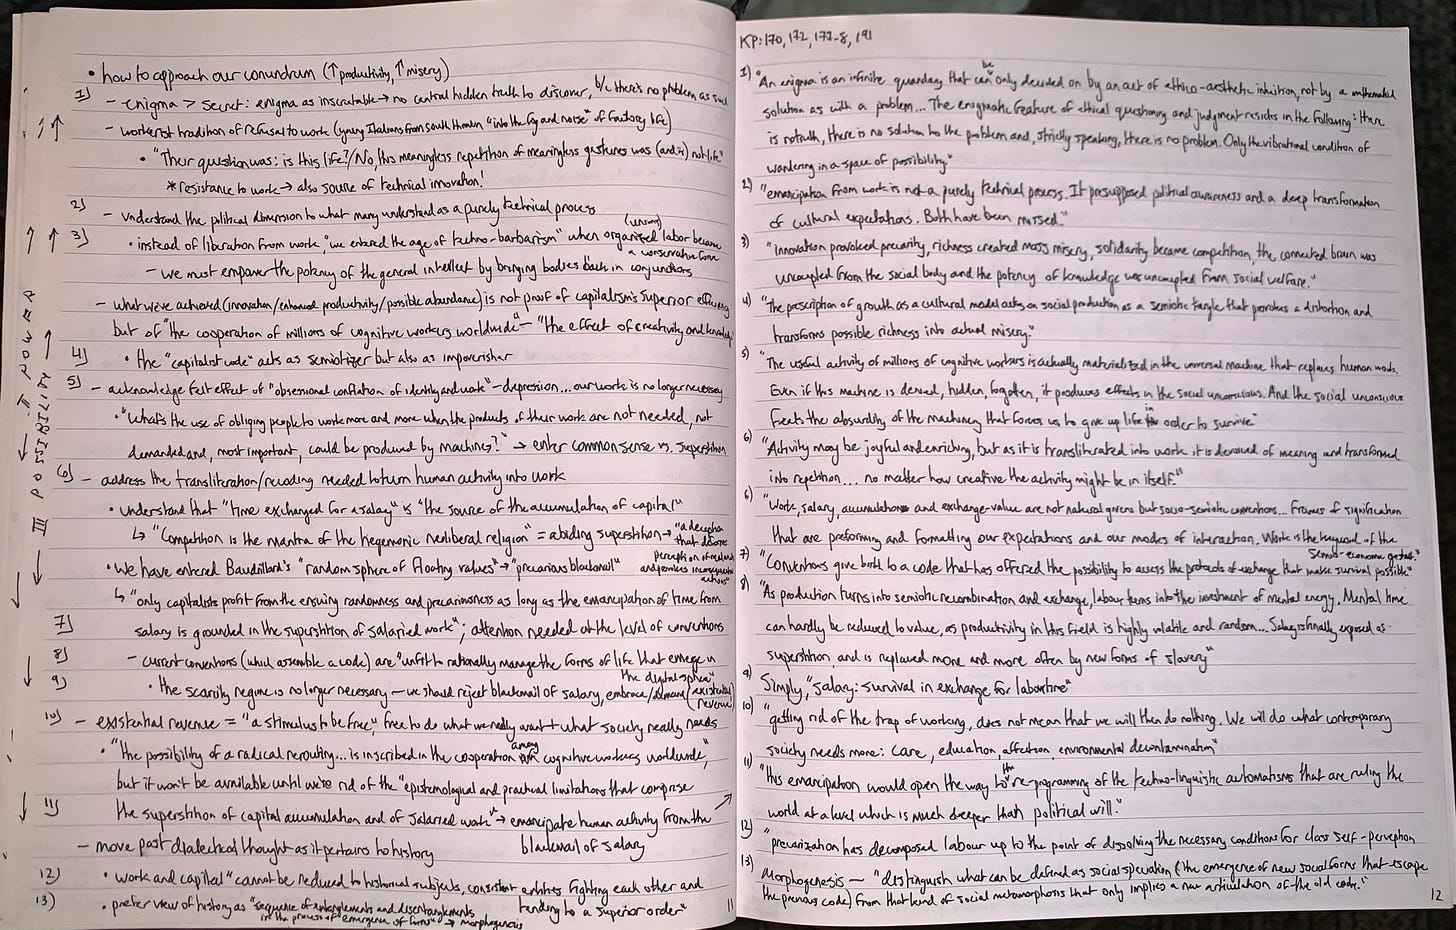 • how to approach our conundrum (↑productivity, ↑misery)
1) - enigma > secret: enigma as inscrutable → no central hidden truth to discover, b/c there's no problem as such
- workerist tradition of refusal to work (young Italians from south thrown "into the fog and noise" of factory life)
• "Their question was: is this life?/No, this meaningless repetition of meaningless gestures was (and is) not life"
* resistance to work → also source of technical innovation!
2) - understand the political dimension to what many understand as a purely technical process
(unions)
3) • instead of liberation from work "we entered the age of techno-barbarism" when organized labor became
a conservative force
- we must empower the potency of the general intellect by bringing bodies back in conjunctions
- what we've achieved (innovation/enhanced productivity/possible abundance) is not proof of capitalism's superior efficiency
but of "the cooperation of millions of cognitive workers worldwide" – "the effect of creativity and knowledge"
4) • the "capitalist code" acts as semiotizer but also as impoverisher
5) - acknowledge felt effect of "obsessional conflation of identity and work" – depression... our work is no longer necessary
• "What's the use of obliging people to work more and more when the products of their work are not needed, not
demanded and, most important, could be produced by machines?" → enter common sense vs. superstition
6) - address the transliteration/recoding needed to turn human activity into work
• understand that "time exchanged for a salary" is "the source of the accumulation of capital"
↳ "Competition is the mantra of the hegemonic neoliberal religion" = abiding superstition → "a deception
that distorts
perception of reality
• We have entered Baudrillard's "random sphere of floating values" → "precarious blackmail"
and provokes
actions"
↳ "only capitalists profit from the ensuing randomness and precariousness as long as the emancipation of time from
7) salary is grounded in the superstition of salaried work"; attention needed at the level of conventions
8) - current conventions (which assemble a code) are "unfit to rationally manage the forms of life that emerge in
the digital sphere"
9) • the scarcity regime is no longer necessary – we should reject blackmail of salary, embrace/demand (existential
revenue)
10) - existential revenue = "a stimulus to be free," free to do what we really want + what society really needs
• "the possibility of a radical rerouting... is inscribed in the cooperation among cognitive workers worldwide,"
but it won't be available until we're rid of the "epistemological and practical limitations that comprise
11) the superstition of capital accumulation and of salaried work" → emancipate human activity from the
blackmail of salary
- move past dialectical thought as it pertains to history
12) • work and capital "cannot be reduced to historical subjects, consistent entities fighting each other and
tending to a superior order"
13) • prefer view of history as "sequence of entanglements and disentanglements
in the process of emergence of forms" → morphogenesis
11
II POWER
III POSSIBILITY
KP: 170, 172, 177-8, 191
1) "An enigma is an infinite quandary that can be only decided on by an act of ethico-aesthetic intuition, not by a mathematical
solution as with a problem... The enigmatic feature of ethical questioning and judgment resides in the following: there
is no truth, there is no solution to the problem and, strictly speaking, there is no problem. Only the vibrational condition of
wandering in a space of possibility"
2) "emancipation from work is not a purely technical process. It presupposed political awareness and a deep transformation
of cultural expectations. Both have been missed."
3) "innovation provoked precarity, richness created mass misery, solidarity became competition, the connected brain was
uncoupled from the social body and the potency of knowledge was uncoupled from social welfare."
4) "The prescription of growth as a cultural model acts on social production as a semiotic tangle that provokes a distortion and
transforms possible richness into actual misery."
5) "The useful activity of millions of cognitive workers is actually materialized in the universal machine that replaces human work.
Even if this machine is denied, hidden, forgotten, it produces effects in the social unconscious. And the social unconscious
feels the absurdity of the machinery that forces us to give up life in order to survive"
6) "Activity may be joyful and enriching, but as it is transliterated into work it is devoid of meaning and transformed
into repetition... no matter how creative the activity might be in itself."
6) "Work, salary, accumulation and exchange-value are not natural givens but socio-semiotic conventions... Frames of signification
that are preforming and formatting our expectations and our modes of interaction. Work is the keyword of the
semio-economic gestalt."
7) "Conventions give birth to a code that has offered the possibility to access the protocols of exchange that make survival possible"
8) "As production turns into semiotic recombination and exchange, labour turns into the investment of mental energy. Mental time
can hardly be reduced to value, as productivity in this field is highly volatile and random... Salary is finally exposed as
superstition, and is replaced more and more often by new forms of slavery"
9) Simply, "salary: survival in exchange for labortime"
10) "getting rid of the trap of working, does not mean that we will then do nothing. We will do what contemporary
society needs more: care, education, affection, environmental decontamination"
11) "this emancipation would open the way to the re-programming of the techno-linguistic automatisms that are ruling the
world at a level which is much deeper than political will."
12) "precarization has decomposed labour up to the point of dissolving the necessary conditions for class self-perception
13) Morphogenesis ~ "distinguish what can be defined as social speciation (the emergence of new social forms that escape
the previous code) from that kind of social metamorphosis that only implies a new articulation of the old code."
12